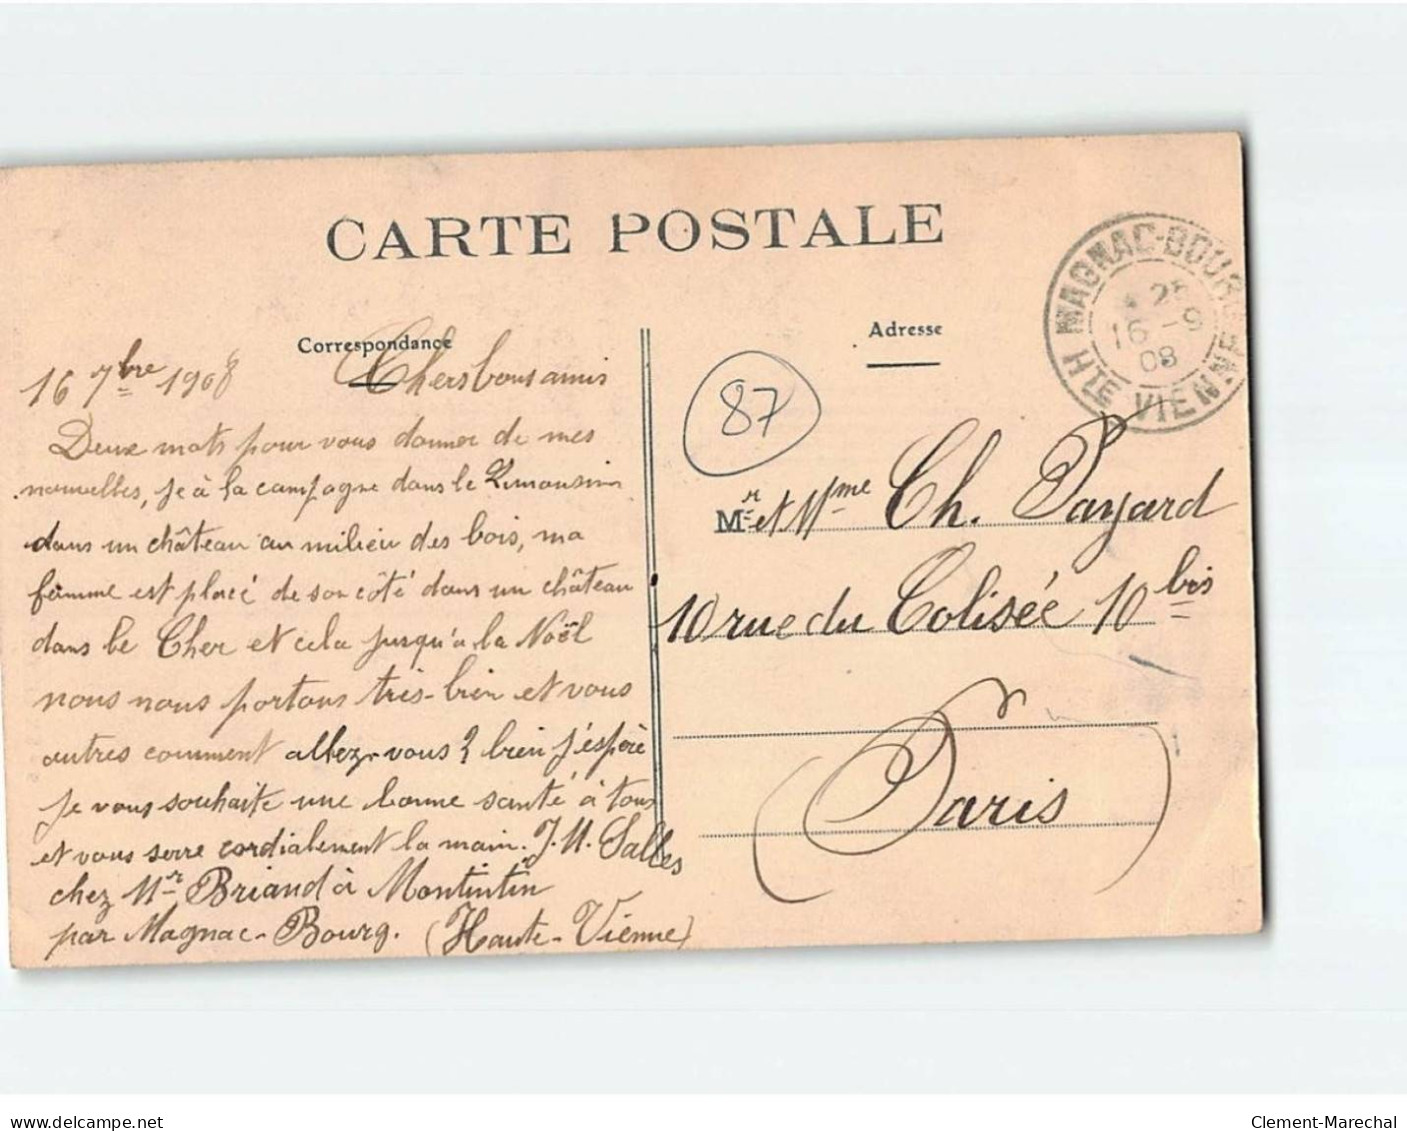 CARTE POSTALE
Correspondance
Adresse
MAGNAC-BOURG
25
16 - 9
08
HTE VIENNE
87
16 7bre 1908
Chers bons amis
Deux mots pour vous donner de mes
nouvelles, je à la campagne dans le Limousin
dans un château au milieu des bois, ma
femme est placé de son côté dans un château
dans le Cher et cela jusqu'a la Noël
nous nous portons très-bien et vous
autres comment allez-vous? bien j'espère
je vous souhaite une bonne santé à tous
et vous serre cordialement la main. J.M. Salles
chez Mr Briand à Montintin
par Magnac-Bourg. (Haute-Vienne)
Mr et Mme Ch. Payard
10 rue du Colisée 10 bis
(Paris)
www.delcampe.net
Clement-Marechal